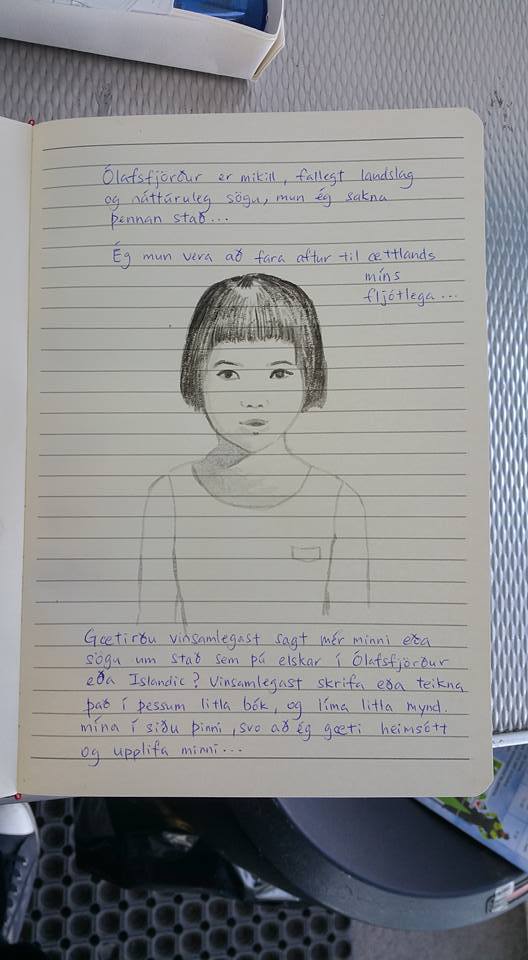 Ólafsfjörður er mikill, fallegt landslag
og náttúruleg sögu, mun ég sakna
þennan stað...
Ég mun vera að fara aftur til ættlands
míns
fljótlega...
Gætirðu vinsamlegast sagt mér minni eða
sögu um stað sem þú elskar í Ólafsfjörður
eða Islandic? Vinsamlegast skrifa eða teikna
það í þessum litla bók, og líma litla mynd
mína í síðu þinni, svo að ég gæti heimsótt
og upplifa minni...